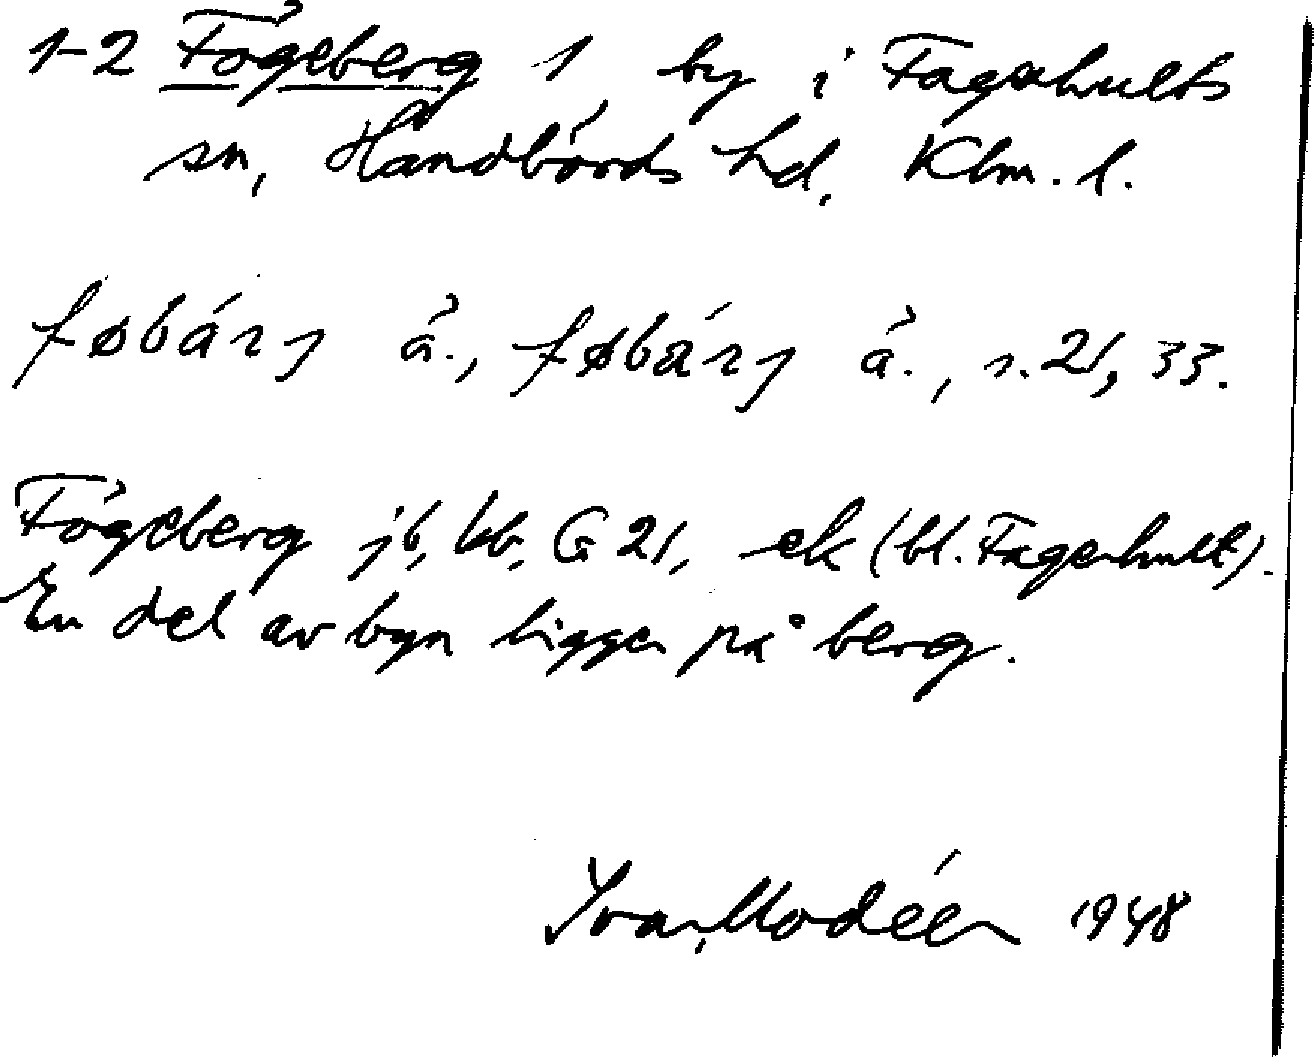 1-2 Fògeberg 1, by i Fagerhults
sn, Handbörds hd, Klm. l.
føbárj å., føbárj å., s. 21, 33.
Fògeberg jb, kb, G 21, ek (bl. Fagerhult).
En del av byn ligger på berg.
Ivar Modéer 1948